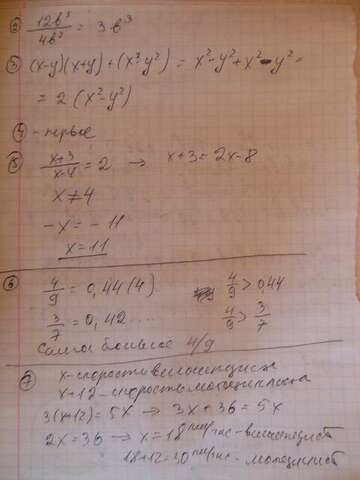 ② 12b⁵/4b² = 3b³
③ (x-y)(x+y)+(x²-y²) = x²-y²+x²-y² =
= 2(x²-y²)
④ - первые
⑤ x+3/x-4 = 2 → x+3 = 2x-8
x ≠ 4
-x = -11
x = 11
⑥ 4/9 = 0,44(4) 4/9 > 0,44
3/7 = 0,42.... 4/9 > 3/7
Самое большое 4/9
⑦ x - скорость велосипедиста
x+12 - скорость мотоциклиста
3(x+12) = 5x → 3x+36 = 5x
2x = 36 → x = 18 км/час - велосипедист
18+12 = 30 км/час - мотоциклист